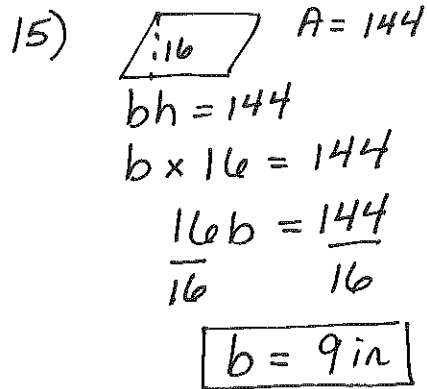 15) 16 A = 144
bh = 144
b x 16 = 144
16b = 144
16 16
b = 9 in